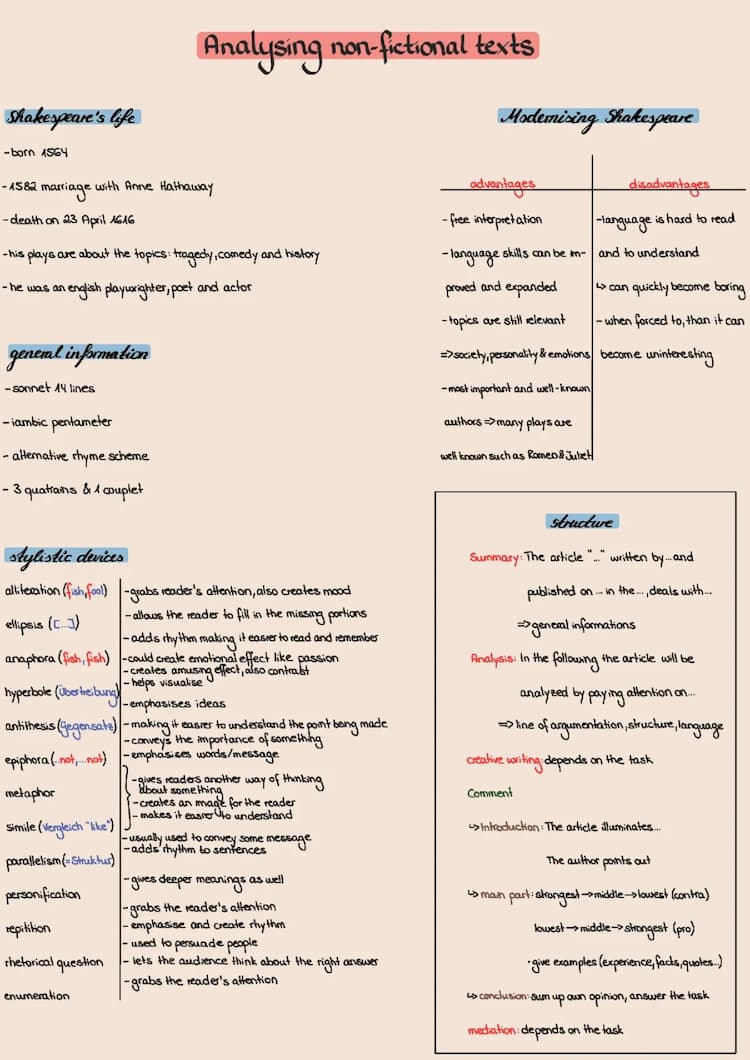 Analysing non-fictional texts
Shakespeare's life
-born 1564
-1582 marriage with Anne Hathaway
-death on 23 April 1616
-his plays are about the topics: tragedy, comedy and history
-he was an english playwrighter, poet and actor
general information
-sonnet 14 lines
-iambic pentameter
- alternative rhyme scheme
- 3 quatrains & 1 couplet
Modernising Shakespeare
advantages
- free interpretation
-language skills can be im-
proved and expanded
-topics are still relevant
=>society, personality & emotions
-most important and well-known
authors => many plays are
well known such as Romeo & Juliet
disadvantages
-language is hard to read
and to understand
↳ can quickly become boring
- when forced to, than it can
become uninteresting
stylistic devices
alliteration (fish, fool)
ellipsis ([...])
anaphora (fish, fish)
hyperbole (Übertreibung)
antithesis (Gegensatz)
epiphora (...not, ...not)
metaphor
simile (Vergleich "like")
parallelism (=Struktur)
personification
repitition
rhetorical question
enumeration
-grabs reader's attention, also creates mood
-allows the reader to fill in the missing portions
-adds rhythm making it easier to read and remember
-could create emotional effect like passion
-creates amusing effect, also contrast
-helps visualise
-emphasises ideas
-making it easier to understand the point being made
-conveys the importance of something
-emphasises words/message
-gives readers another way of thinking
about something
-creates an image for the reader
- makes it easier to understand
-usually used to convey some message
-adds rhythm to sentences
-gives deeper meanings as well
-grabs the reader's attention
- emphasise and create rhythm
- used to persuade people
- lets the audience think about the right answer
-grabs the reader's attention
structure
Summary: The article "..." written by... and
published on ... in the..., deals with...
=>general informations
Analysis: In the following the article will be
analyzed by paying attention on...
=> line of argumentation, structure, language
creative writing: depends on the task
Comment
↳Introduction: The article illuminates...
The author points out
↳ main part: strongest→middle→lowest (contra)
lowest→middle→strongest (pro)
·give examples (experience, facts, quotes...)
↳ conclusion: sum up own opinion, answer the task
mediation: depends on the task